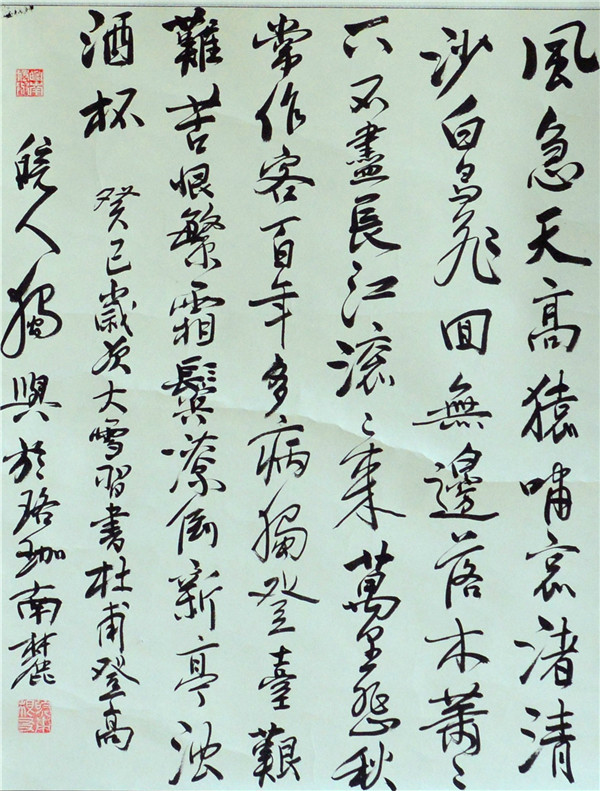 風急天高猿嘯哀渚清
沙白鳥飛回無邊落木蕭〻
下不盡長江滾〻来萬里悲秋
常作客百年多病獨登臺艱
難苦恨繁霜鬢潦倒新亭濁
酒杯 癸巳歲次大雪習書杜甫登高
皖人獨與於珞珈南麓